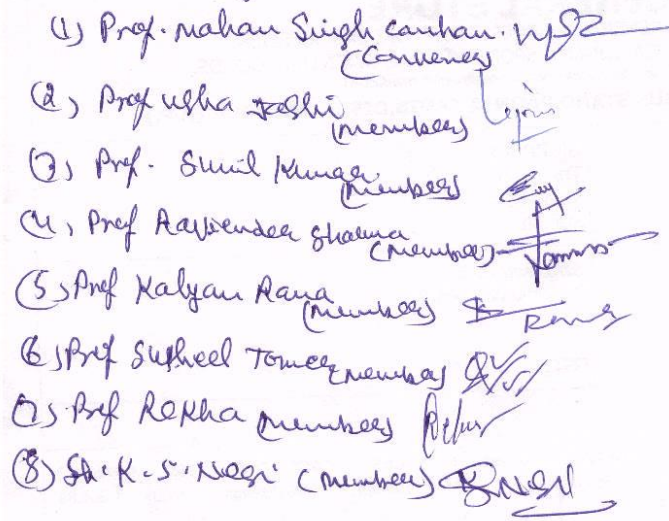 (1) Prof. Mahan Singh Cauhan.
(Convener)
(2) Prof Usha Joshi
(Member)
(3) Prof. Sunil Kumar
(Member)
(4) Prof Raviender Sharma
(Member)
(5) Prof Kalyan Rana
(Member)
(6) Prof Susheel Tomer (Member)
(7) Prof Rekha (Member)
(8) Sh. K. S. Negi (Member) KSNegi